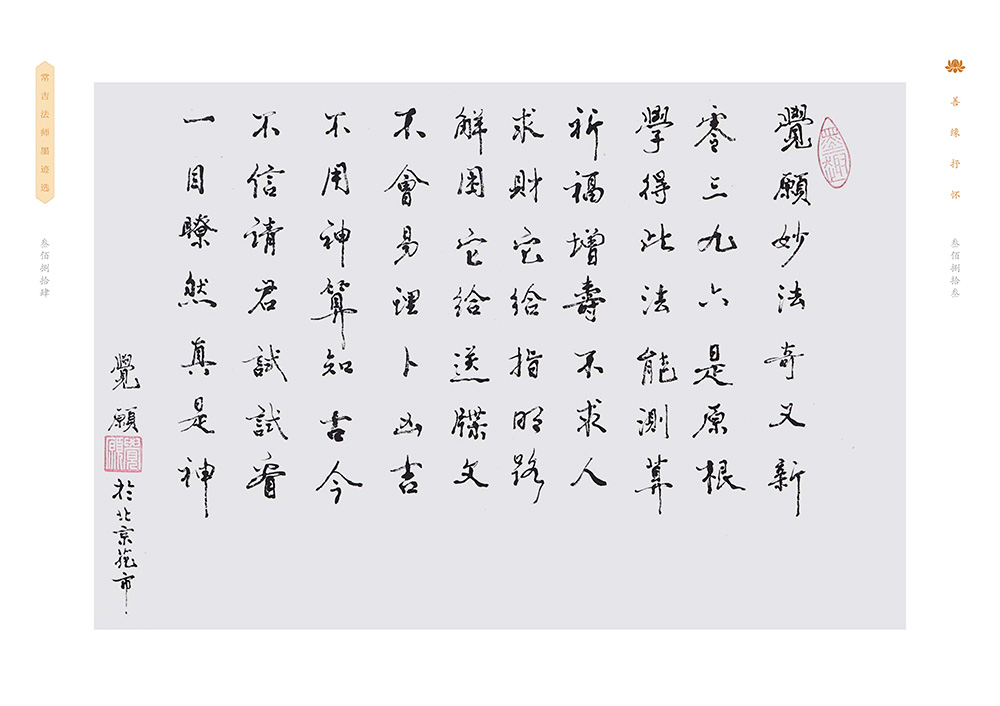 善缘抒怀
叁佰捌拾叁
覺願妙法奇又新
零三九六是原根
學得此法能測算
祈福增壽不求人
求財它給指明路
解困它給送牒文
不會易理卜凶吉
不用神算知古今
不信請君試試看
一目瞭然真是神
覺願
覺願
於北京苑市
常吉法师墨迹选
叁佰捌拾肆